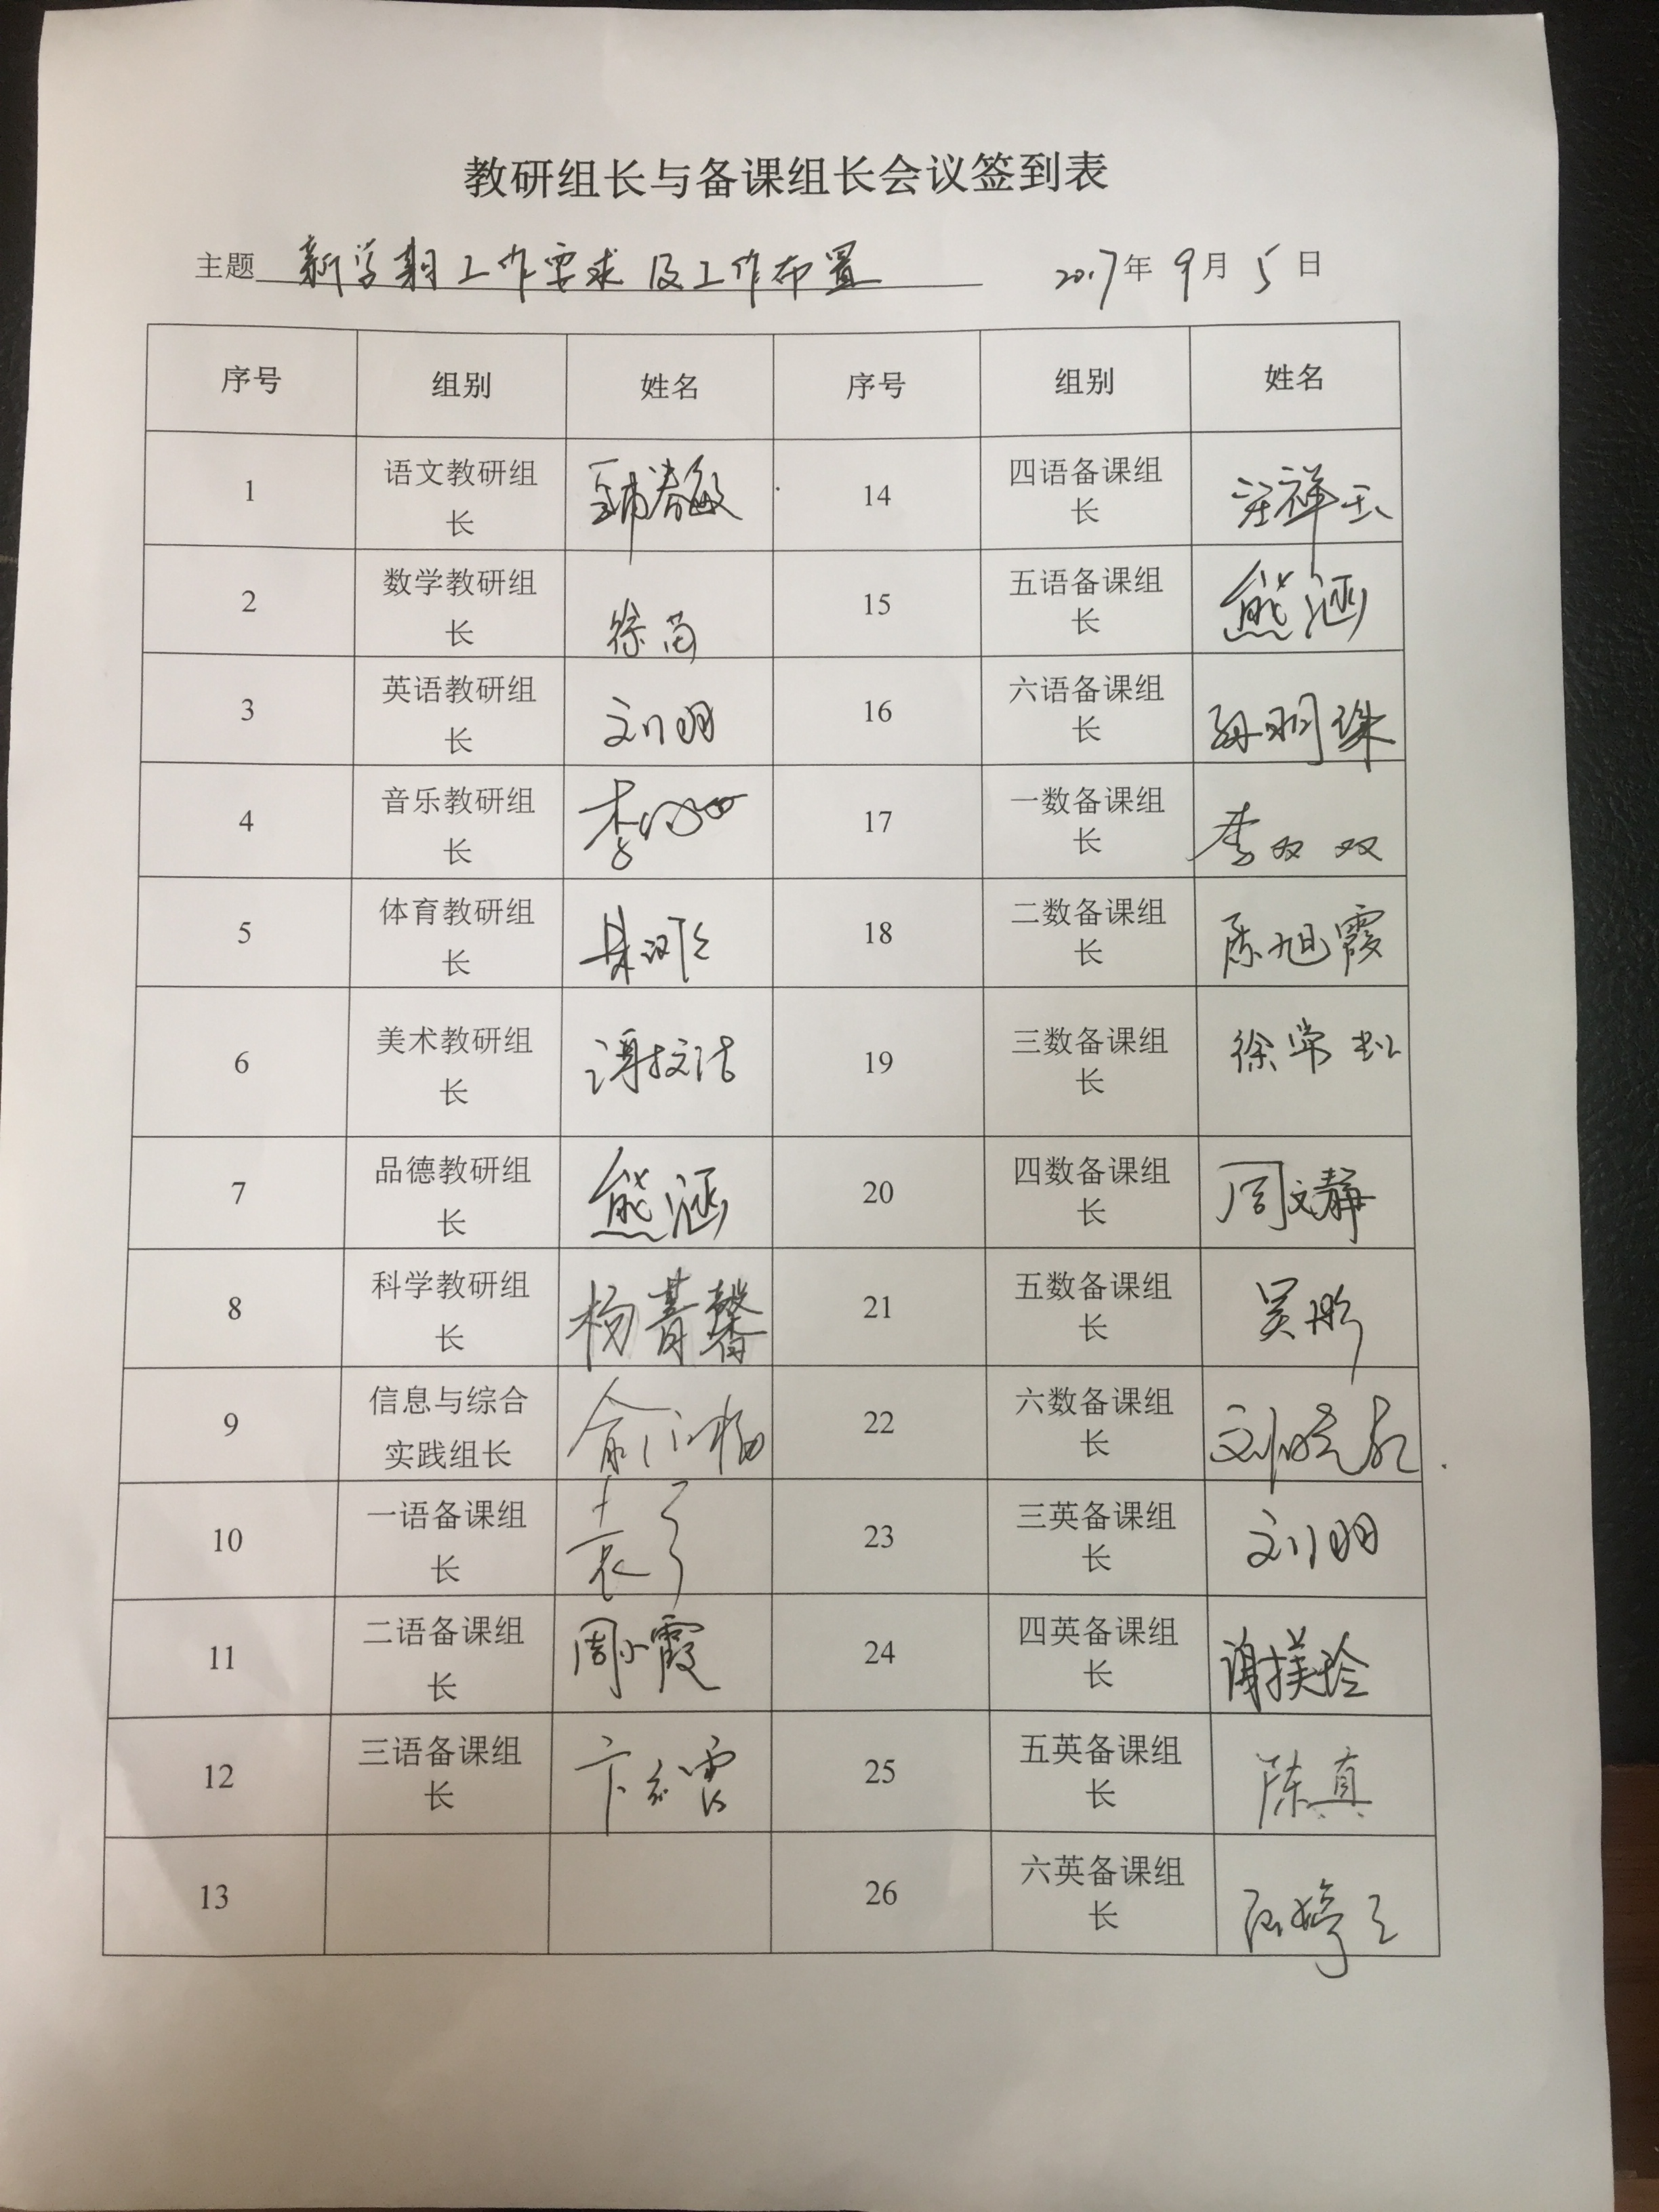 教研组长与备课组长会议签到表
主题 新学期工作要求及工作布置 2017年9月5日
序号 组别 姓名 序号 组别 姓名
1 语文教研组长 14 四语备课组长 汪祥云
2 数学教研组长 徐苗 15 五语备课组长 熊涵
3 英语教研组长 刘明 16 六语备课组长 孙明珠
4 音乐教研组长 李 17 一数备课组长 李双双
5 体育教研组长 18 二数备课组长 陈旭霞
6 美术教研组长 谭 19 三数备课组长 徐常
7 品德教研组长 熊涵 20 四数备课组长 周文静
8 科学教研组长 杨菁馨 21 五数备课组长 吴彤
9 信息与综合实践组长 俞 22 六数备课组长 刘晓
10 一语备课组长 袁 23 三英备课组长 刘明
11 二语备课组长 周小霞 24 四英备课组长 谢美玲
12 三语备课组长 卞 25 五英备课组长 陈真
13 26 六英备课组长